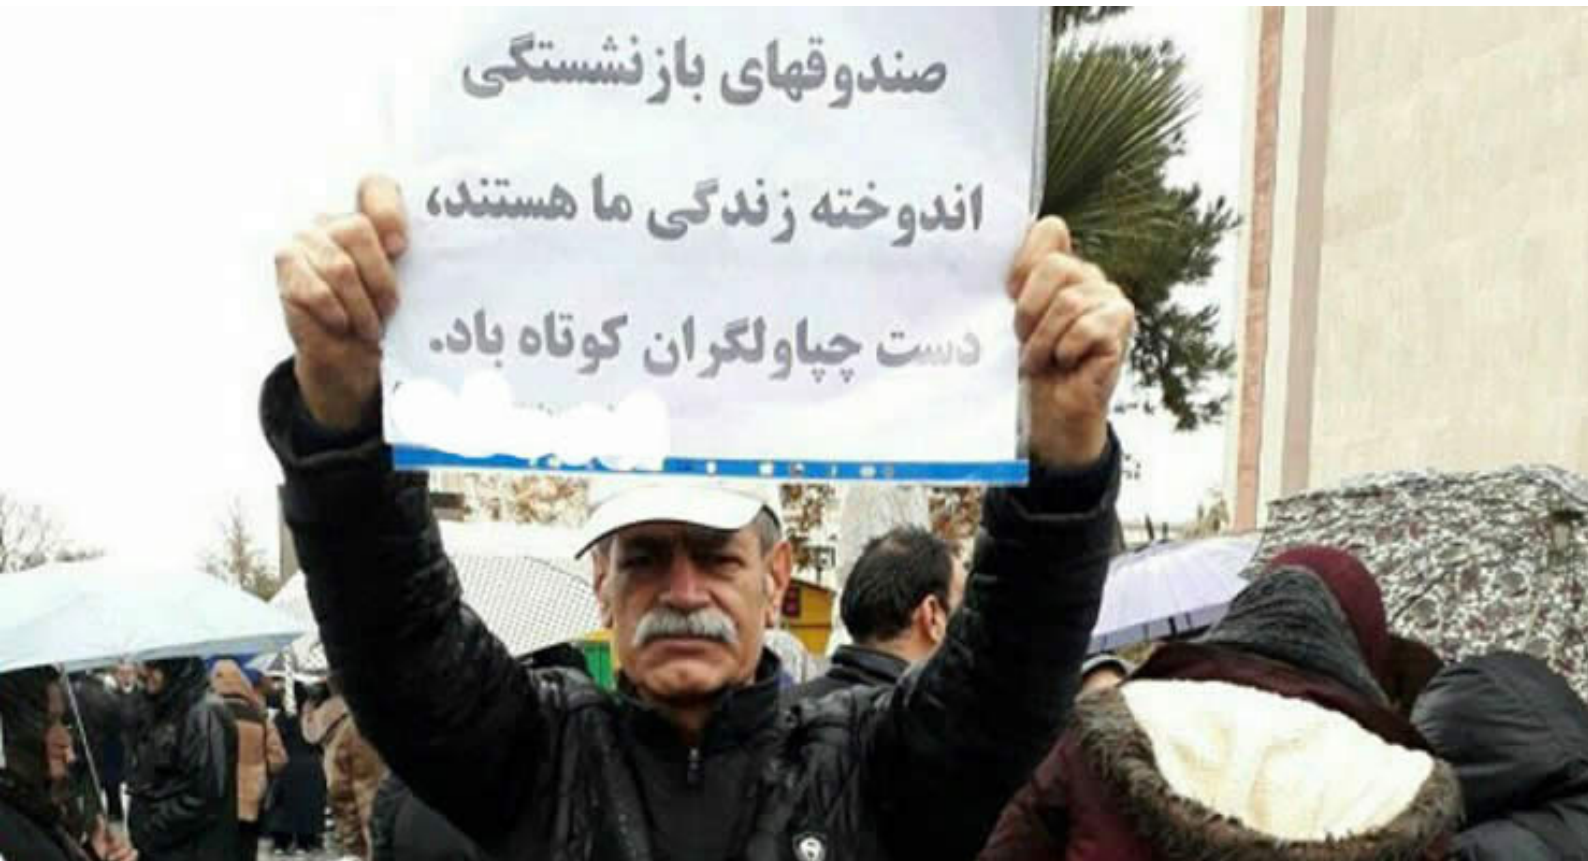 صندوقهای بازنشستگی
اندوخته زندگی ما هستند،
دست چپاولگران کوتاه باد.